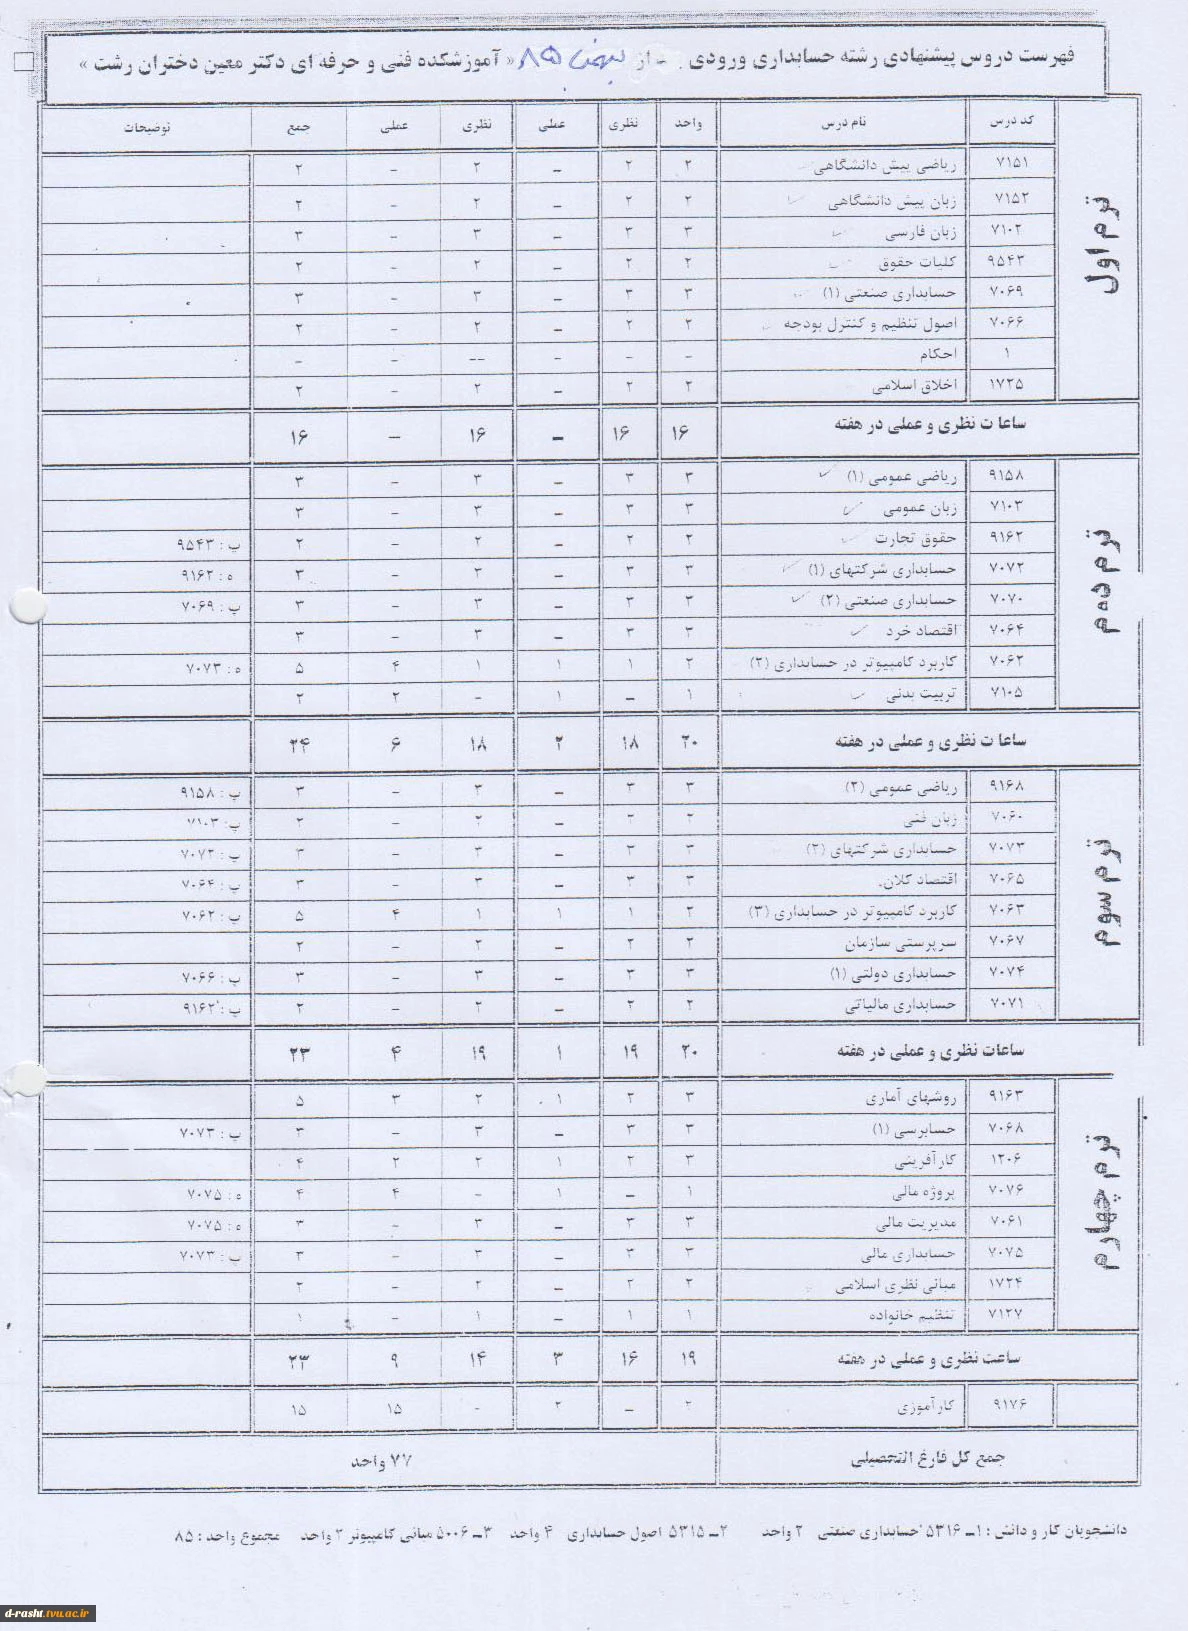 فهرست دروس پیشنهادی رشته حسابداری ورودی از بهمن ۸۵ « آموزشکده فنی و حرفه ای دکتر معین دختران رشت »
کد درس نام درس واحد نظری عملی نظری عملی جمع توضیحات
ترم اول
۷۱۵۱ ریاضی پیش دانشگاهی ۲ ۲ – ۲ – ۲
۷۱۵۲ زبان پیش دانشگاهی ۲ ۲ – ۲ – ۲
۷۱۰۲ زبان فارسی ۳ ۳ – ۳ – ۳
۹۵۴۳ کلیات حقوق ۲ ۲ – ۲ – ۲
۷۰۶۹ حسابداری صنعتی (۱) ۳ ۳ – ۳ – ۳
۷۰۶۶ اصول تنظیم و کنترل بودجه ۲ ۲ – ۲ – ۲
۱ احکام - - – -- – –
۱۷۲۵ اخلاق اسلامی ۲ ۲ – ۲ – ۲
ساعات نظری و عملی در هفته ۱۶ ۱۶ – ۱۶ – ۱۶
ترم دوم
۹۱۵۸ ریاضی عمومی (۱) ۳ ۳ – ۳ – ۳
۷۱۰۳ زبان عمومی ۳ ۳ – ۳ – ۳
۹۱۶۲ حقوق تجارت ۲ ۲ – ۲ – ۲ پ : ۹۵۴۳
۷۰۷۲ حسابداری شرکتهای (۱) ۳ ۳ – ۳ – ۳ ه : ۹۱۶۲
۷۰۷۰ حسابداری صنعتی (۲) ۳ ۳ – ۳ – ۳ پ : ۷۰۶۹
۷۰۶۴ اقتصاد خرد ۳ ۳ – ۳ – ۳
۷۰۶۲ کاربرد کامپیوتر در حسابداری (۲) ۲ ۱ ۱ ۱ ۴ ۵ ه : ۷۰۷۳
۷۱۰۵ تربیت بدنی ۱ – ۱ - ۲ ۲
ساعات نظری و عملی در هفته ۲۰ ۱۸ ۲ ۱۸ ۶ ۲۴
ترم سوم
۹۱۶۸ ریاضی عمومی (۲) ۳ ۳ – ۳ – ۳ پ : ۹۱۵۸
۷۰۶۰ زبان فنی ۲ ۲ – ۲ – ۲ پ: ۷۱۰۳
۷۰۷۳ حسابداری شرکتهای (۲) ۳ ۳ – ۳ – ۳ پ : ۷۰۷۲
۷۰۶۵ اقتصاد کلان. ۳ ۳ – ۳ – ۳ پ : ۷۰۶۴
۷۰۶۳ کاربرد کامپیوتر در حسابداری (۳) ۲ ۱ ۱ ۱ ۴ ۵ پ : ۷۰۶۲
۷۰۶۷ سرپرستی سازمان ۲ ۲ – ۲ – ۲
۷۰۷۴ حسابداری دولتی (۱) ۳ ۳ – ۳ – ۳ پ : ۷۰۶۶
۷۰۷۱ حسابداری مالیاتی ۲ ۲ – ۲ – ۲ پ : ۹۱۶۲
ساعات نظری و عملی در هفته ۲۰ ۱۹ ۱ ۱۹ ۴ ۲۳
ترم چهارم
۹۱۶۳ روشهای آماری ۳ ۲ ۱ ۲ ۳ ۵
۷۰۶۸ حسابرسی (۱) ۳ ۳ – ۳ – ۳ پ : ۷۰۷۳
۱۲۰۶ کارآفرینی ۳ ۲ ۱ ۲ ۲ ۴
۷۰۷۶ پروژه مالی ۱ – ۱ - ۴ ۴ ه : ۷۰۷۵
۷۰۶۱ مدیریت مالی ۳ ۳ – ۳ – ۳ ه : ۷۰۷۵
۷۰۷۵ حسابداری مالی ۳ ۳ – ۳ – ۳ پ : ۷۰۷۳
۱۷۲۴ مبانی نظری اسلامی ۲ ۲ – ۲ – ۲
۷۱۲۷ تنظیم خانواده ۱ ۱ – ۱ – ۱
ساعت نظری و عملی در هفته ۱۹ ۱۶ ۳ ۱۴ ۹ ۲۳
۹۱۷۶ کارآموزی ۲ – ۲ - ۱۵ ۱۵
جمع کل فارغ التحصیلی ۷۷ واحد
دانشجویان کار و دانش : ۱ــ ۵۳۱۶ حسابداری صنعتی ۲ واحد ۲ــ ۵۳۱۵ اصول حسابداری ۴ واحد ۳ــ ۵۰۰۶ مبانی کامپیوتر ۲ واحد مجموع واحد : ۸۵
d-rasht.tvu.ac.ir